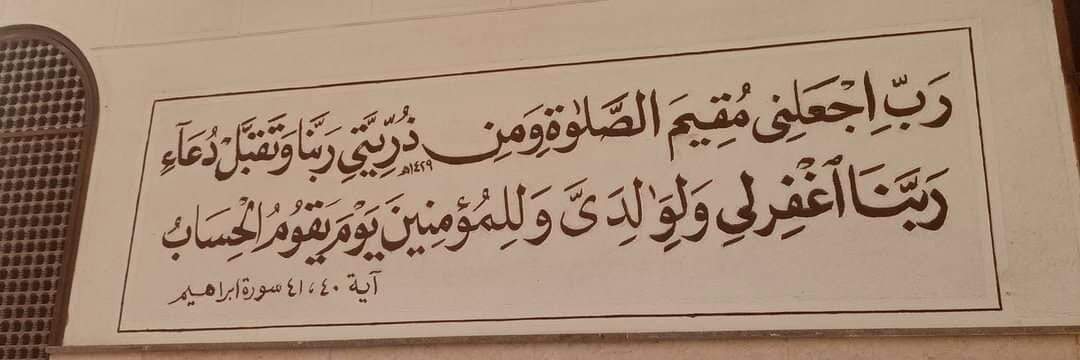 رَبِّ اِجْعَلنِى مُقِيمَ الصَّلَوٰةِ وَمِن ذُرِّيَّتِي رَبَّنَا وَتَقَبَّلْ دُعَآءِ
١٤٢٩هـ
رَبَّنَا ٱغْفِرلِي وَلِوَٰلِدَىَّ وَلِلمُؤمِنِينَ يَوْمَ يَقُومُ الْحِسَابُ
آية ٤٠، ٤١ سورة ابراهيم